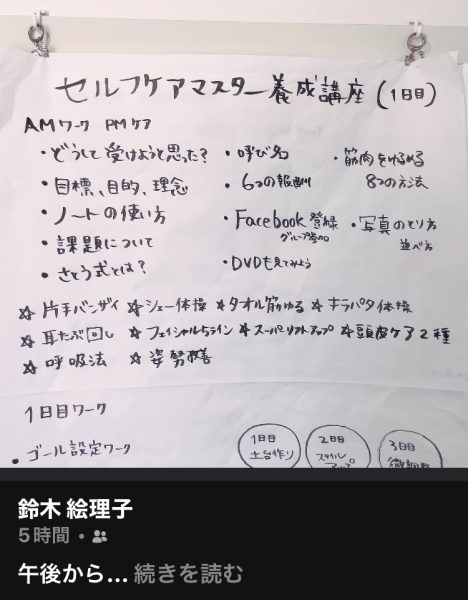 セルフケアマスター養成講座(1日目)
AMワーク PMケア
・どうして受けようと思った?
・目標、目的、理念
・ノートの使い方
・課題について
・さとう式とは?
・呼び名
・6つの報酬
・Facebook登録
グループ参加
・DVDも見てみよう
・筋肉をゆるめる
8つの方法
・写真のとり方
並べ方
☆片手バンザイ ☆シェー体操 ☆タオル筋ゆる ☆キラパタ体操
☆耳たぶ回し ☆フェイシャル5ライン ☆スーパーリフトアップ ☆頭皮ケア2種
☆呼吸法 ☆姿勢改善
1日目ワーク
・ゴール設定ワーク
1日目
土台作り
2日目
スタイル
アップ
3日目
微調整
鈴木 絵理子
5時間
午後から... 続きを読む